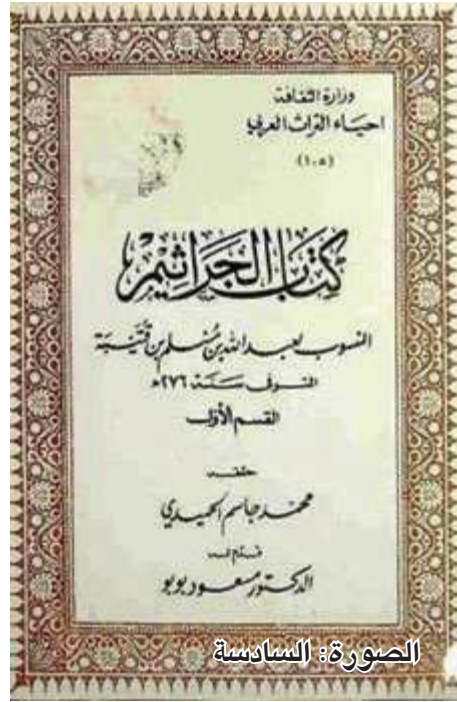 وزارة الثقافة
احياء التراث العربي
(١٠٥)
كِتَابُ الجَرَاثِيْمِ
المنسوب لعبد الله بن مُسْلم بن قُتَيْبَة
المتوفى سَنَة ٢٧٦هـ
القسم الأول
حققه
محمد جاسم الحميدي
قدم له
الدكتور مسعود بوبو
الصورة: السادسة